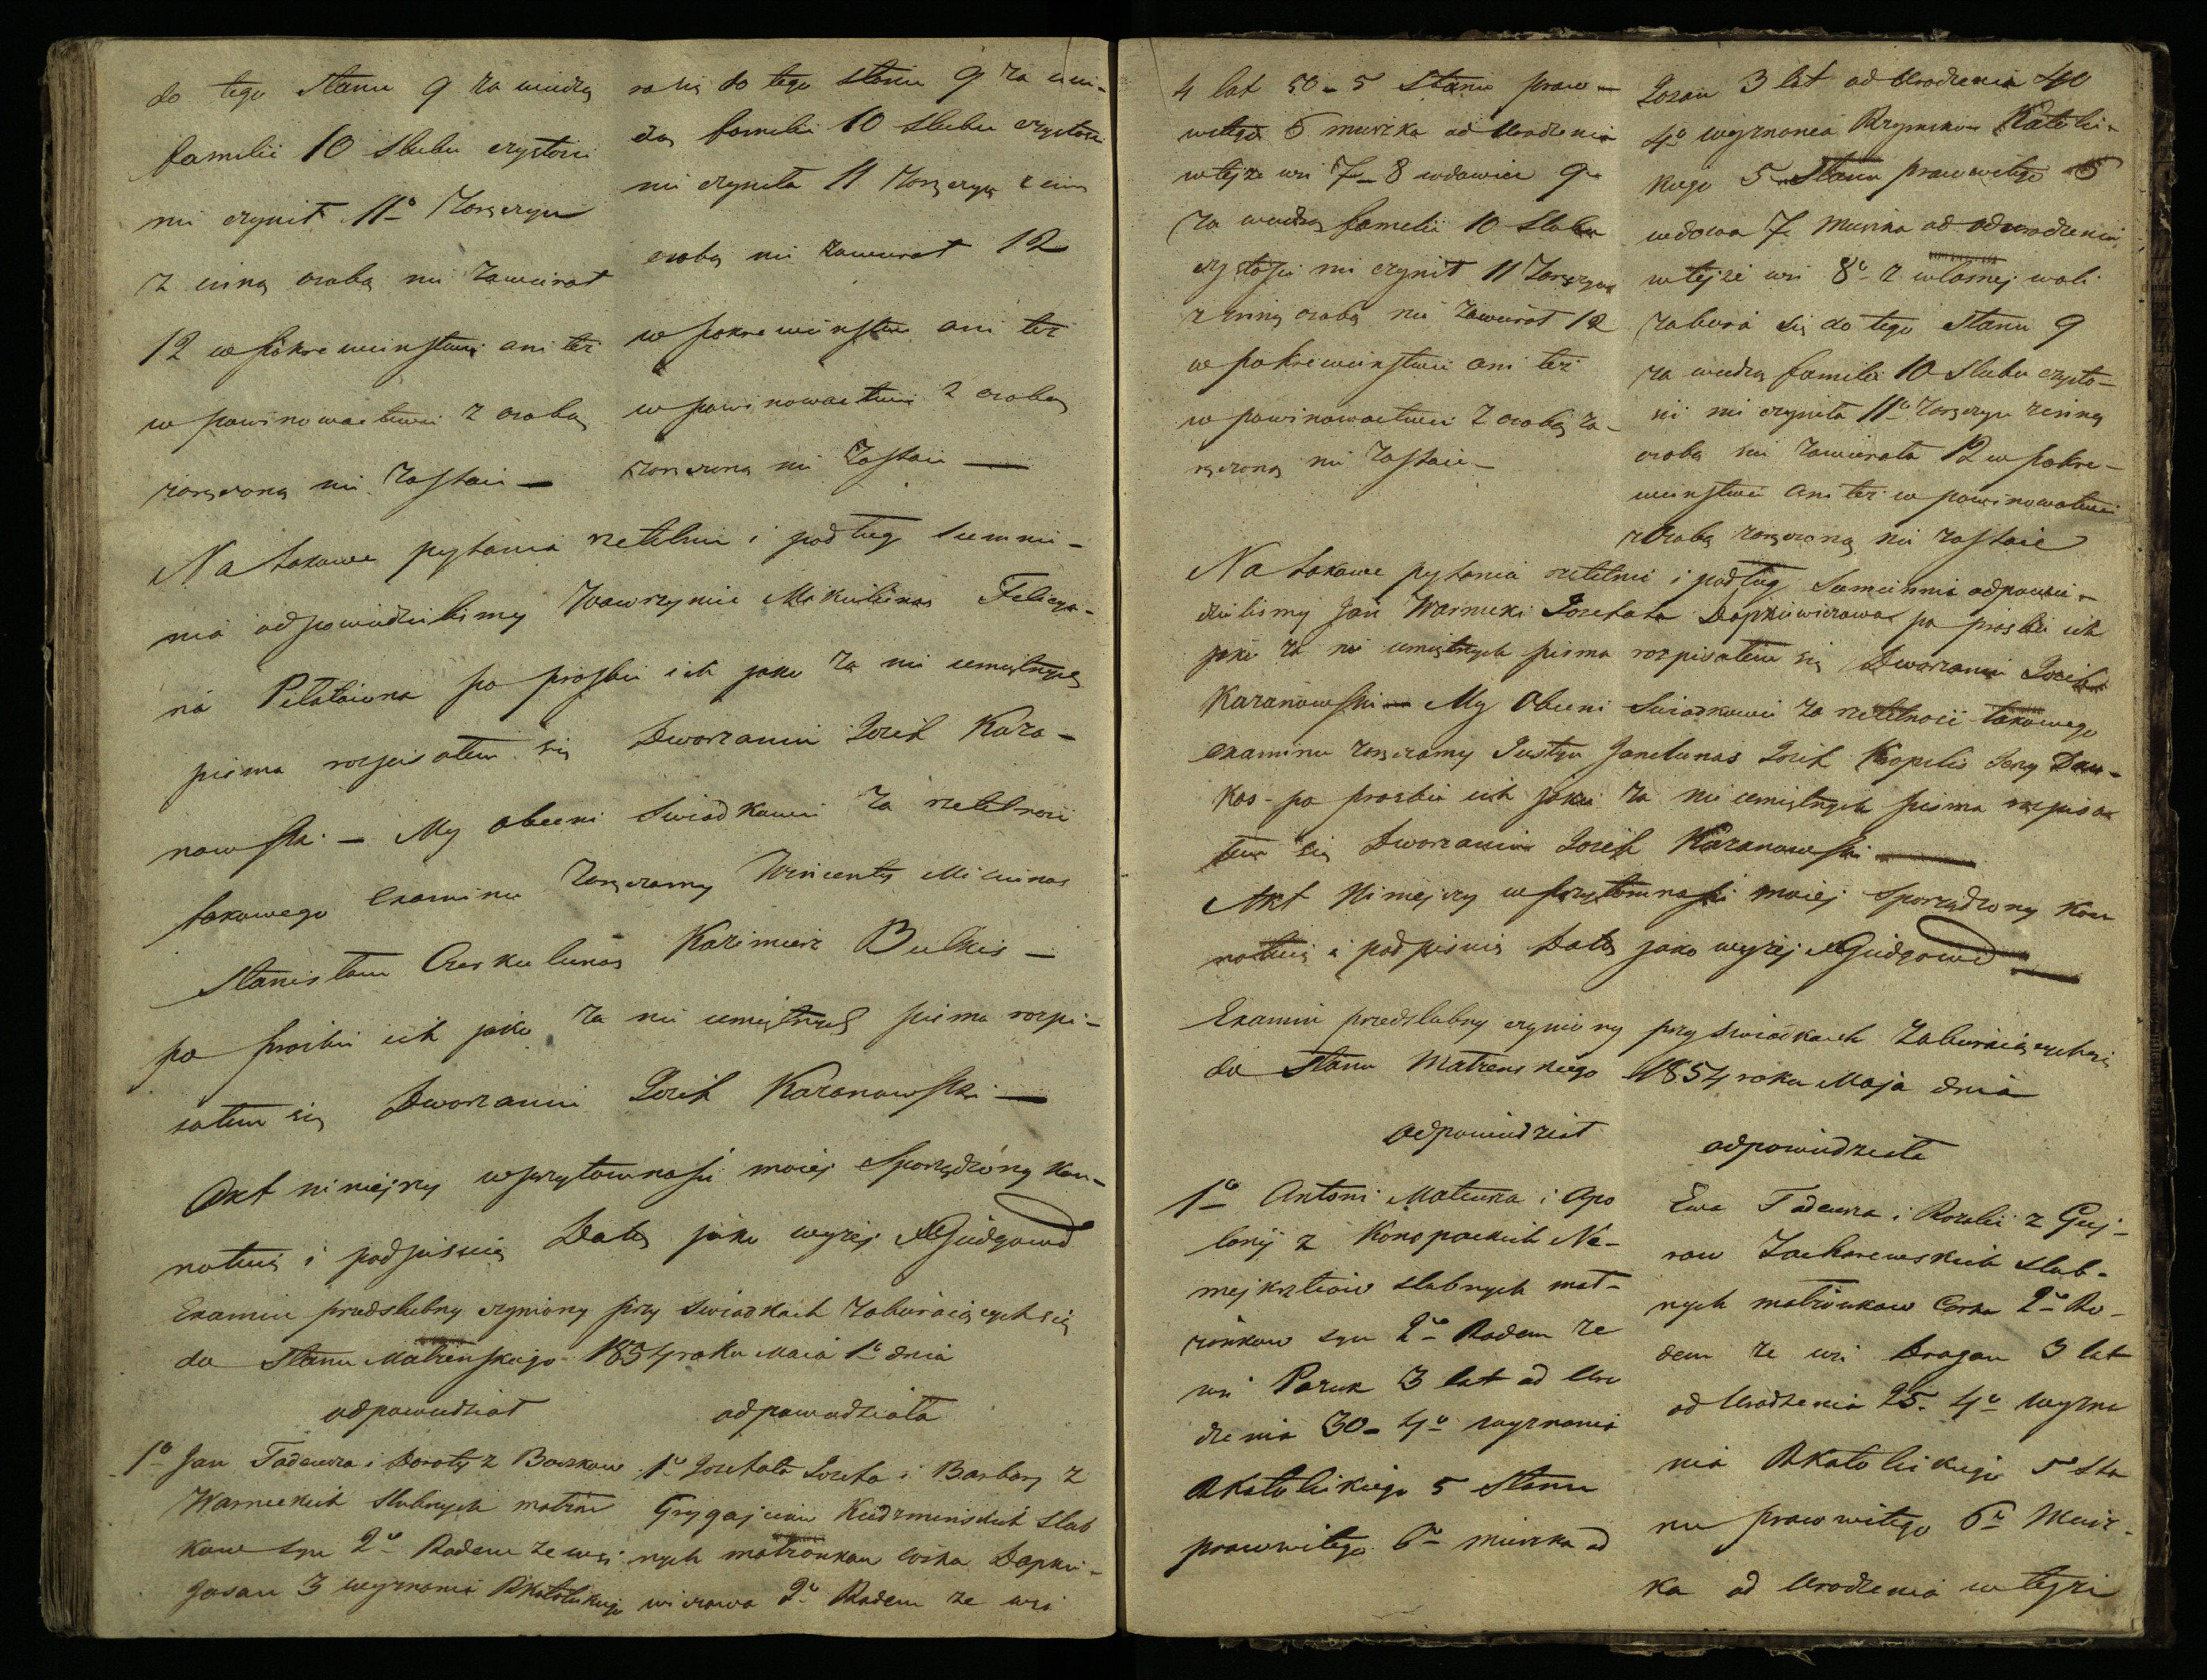 do tego stanu 9 za wiedzą
familii 10 slubu czystosci
nie czynił 11º Zaręczyn
z inną osobą nie zawierał
12 w pokrewienstwie ani też
w powinowactwie z osobą
zaręczoną nie zostaie —
ra się do tego stanu 9 za wie-
dzą familii 10 slubu czystosci
nie czyniła 11 Zaręczyn z inną
osobą nie zawierał 12
w pokrewienstwie ani też
w powinowactwie z osobą
zaręczoną nie zostaie —
Na takowe pytania rzetelnie i podług sumnie-
nia odpowiedzielismy Wawrzyniec Mikulienas Felicya-
na Pilotowna po prosbie ich jako za nie umiętnych
pisma rozpisałem się Dworzanin Jozef Kaza-
nowski — My obecni swiadkowie za rzetelnosc
takowego Examinu zaręczamy Wincenty Miciunas
Stanisław Czeskulunas Kazimierz Bulkis —
po prosbie ich jako za nie umiętnych pisma rozpi-
sałem się Dworzanin Jozef Kazanowski —
Akt niniejszy w przytomnosci moiej Sporządzony kon-
notuię i podpisuię Datą jako wyżej XGiedgowd
Examin przedslubny czyniony przy swiadkach zabieraiących się
do Stanu Małżenskiego 1854 roku Maia 1º dnia
odpowiedział
1º Jan Tadeusza i Doroty z Boczkow
Warneckich slubnych małżon
kow syn 2º Rodem ze wsi
Jozan 3 wyznania RKatolickiego
odpowiedziała
1º Jozefata Jozefa i Barbary z
Grygajciow Kudzminskich slub
nych małżonkow corka Dopkie-
wiczowa 2º Rodem ze wsi
4 lat 50 - 5 Stanu praw-
witego 6 mieszka od Urodzenia
w tejże wsi 7 - 8 wdowiec 9
za wiedzą familii 10 Slubu
czystosci nie czynił 11 Zaręczyn
z inną osobą nie zawierał 12
w pokrewienstwie ani też
w powinowactwie z osobą za-
ręczoną nie zostaie —
Jozan 3 lat od Urodzenia 40
4º wyznania Rzymsko Katolic-
kiego 5 Stanu prawowitego 6
wdowa 7 mieszka od odurodzenia
w tejże wsi 8º z własnej woli
zabiera się do tego Stanu 9
za wiedzą familii 10 Slubu czysto-
sci nie czyniła 11º Zaręczyn z inną
osobą nie zawierała 12 w pokre-
wienstwie ani też w powinowatwie
z Osobą zaręczoną nie zostaie
Na takowe pytania rzetelnie i podług Sumienia odpowie-
dzielismy Jan Warnecki Jozefata Dopkiewiczowa po prosbie ich
jako za nie umiętnych pisma rozpisałem się Dworzanin Jozef
Kazanowski — My Obecni Swiadkowie za rzetelnosc takowego
examinu zaręczamy Justyn Janelunas Jozef Kopelis Jerzy Dau-
kas - po prosbie ich jako za nie umiętnych pisma rozpisa
łem się Dworzanin Jozef Kazanowski —
Akt Niniejszy w przytomnosci moiej Sporządzony kon
notuię i podpisuię Datą jako wyżej XGiedgowd
Examin przedslubny czyniony przy swiadkach zabieraiących się
do Stanu Małżenskiego 1854 roku Maja dnia
odpowiedział
1º Antoni Mateusza i Apo
lonij z Konopackich Ne-
mejksztiow slubnych mał-
żonkow syn 2º Rodem ze
wsi Pazuk 3 lat od Uro
dzenia 30 - 4º wyznania
RKatolickiego 5 Stanu
prawwitego 6º mieszka od
odpowiedziała
Ewa Tadeusza i Rozalii z Giej-
row Zacharewskich slub-
nych małżonkow Corka 2º Ro-
dem ze wsi Dragan 3 lat
od Urodzenia 25. 4º wyzna
nia RKatolickiego 5 Sta
nu prawwitego 6º Miesz-
ka od Urodzenia w tejże